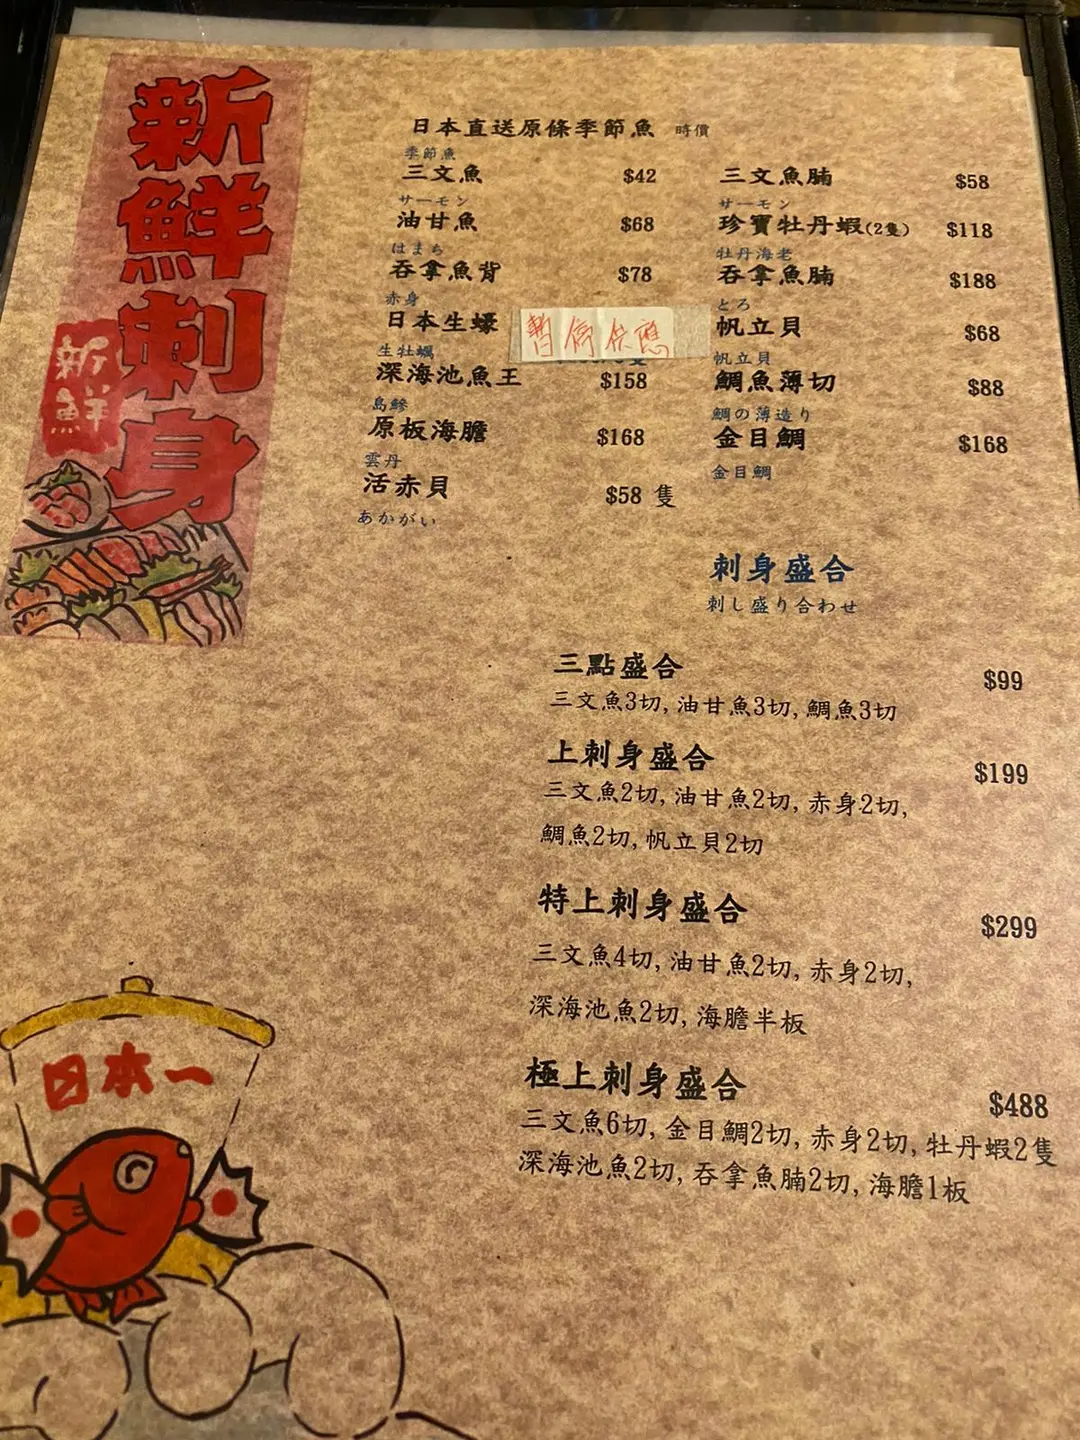 新鮮刺身
新鮮
日本直送原條季節魚 時價
季節魚
三文魚 $42
サーモン
油甘魚 $68
はまち
吞拿魚背 $78
赤身
日本生蠔 暫停供應
生牡蠣
深海池魚王 $158
島鰺
原板海膽 $168
雲丹
活赤貝 $58 隻
あかがい
三文魚腩 $58
サーモン
珍寶牡丹蝦(2隻) $118
牡丹海老
吞拿魚腩 $188
とろ
帆立貝 $68
帆立貝
鯛魚薄切 $88
鯛の薄造り
金目鯛 $168
金目鯛
刺身盛合
刺し盛り合わせ
三點盛合 $99
三文魚3切, 油甘魚3切, 鯛魚3切
上刺身盛合 $199
三文魚2切, 油甘魚2切, 赤身2切,
鯛魚2切, 帆立貝2切
特上刺身盛合 $299
三文魚4切, 油甘魚2切, 赤身2切,
深海池魚2切, 海膽半板
極上刺身盛合 $488
三文魚6切, 金目鯛2切, 赤身2切, 牡丹蝦2隻
深海池魚2切, 吞拿魚腩2切, 海膽1板
日本一